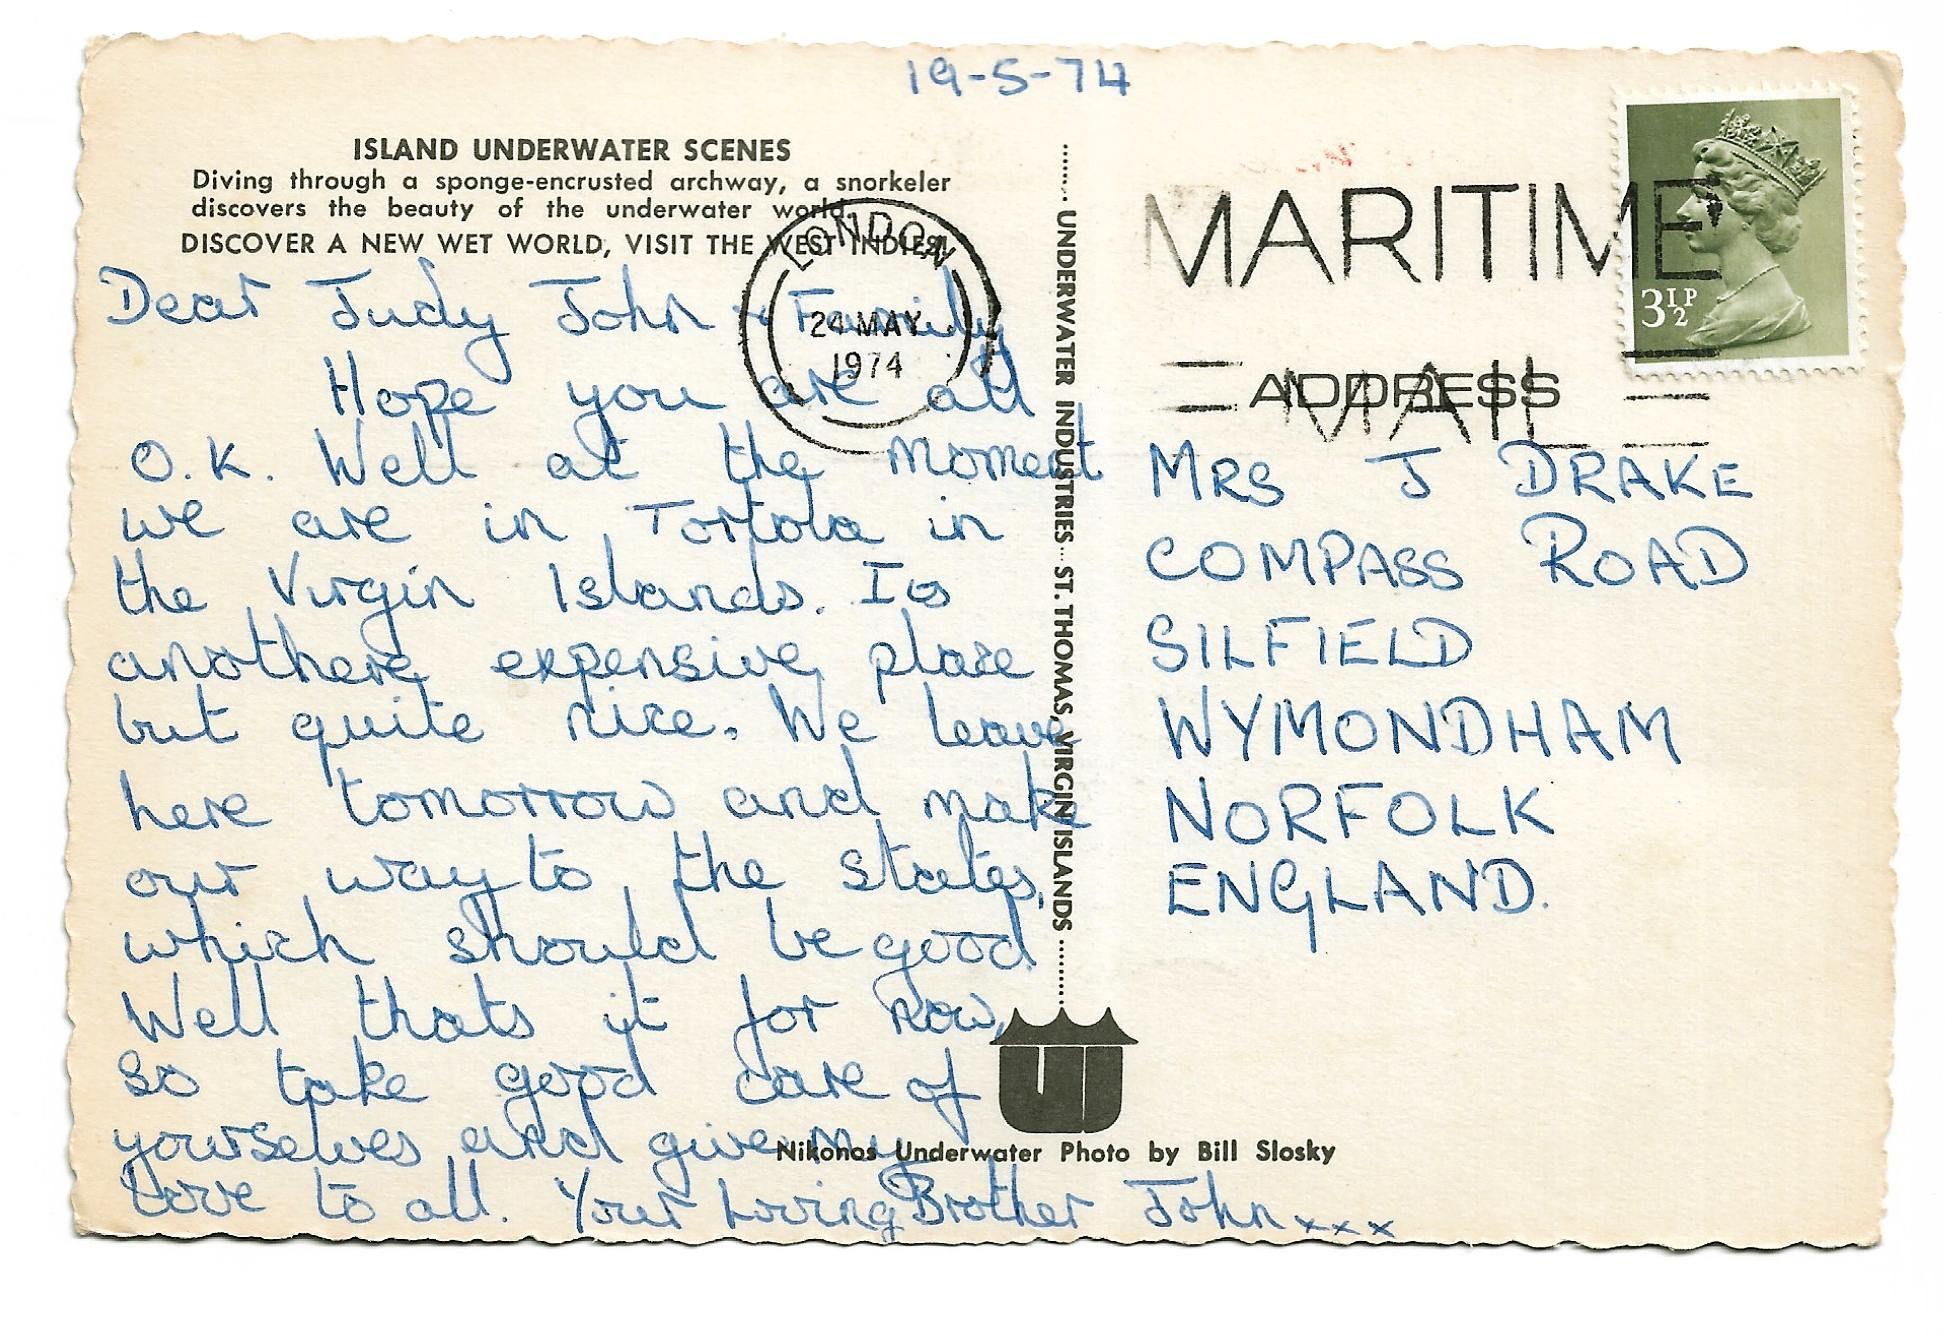 19-5-74
ISLAND UNDERWATER SCENES
Diving through a sponge-encrusted archway, a snorkeler
discovers the beauty of the underwater world.
DISCOVER A NEW WET WORLD, VISIT THE WEST INDIES!
Dear Judy John + Family
Hope you are all
O.K. Well at the moment
we are in Tortola in
the Virgin Islands. Its
anothere expensive place
but quite nice. We leave
here tomorrow and make
our way to the states,
which should be good
Well thats it for now,
so take good care of
yourselves and give my
Love to all. Your Loving Brother John xxx
LONDON
24 MAY
1974
UNDERWATER INDUSTRIES... ST. THOMAS, VIRGIN ISLANDS
UI
Nikonos Underwater Photo by Bill Slosky
MARITIME
MAIL
3½P
ADDRESS
MRS J DRAKE
COMPASS ROAD
SILFIELD
WYMONDHAM
NORFOLK
ENGLAND.